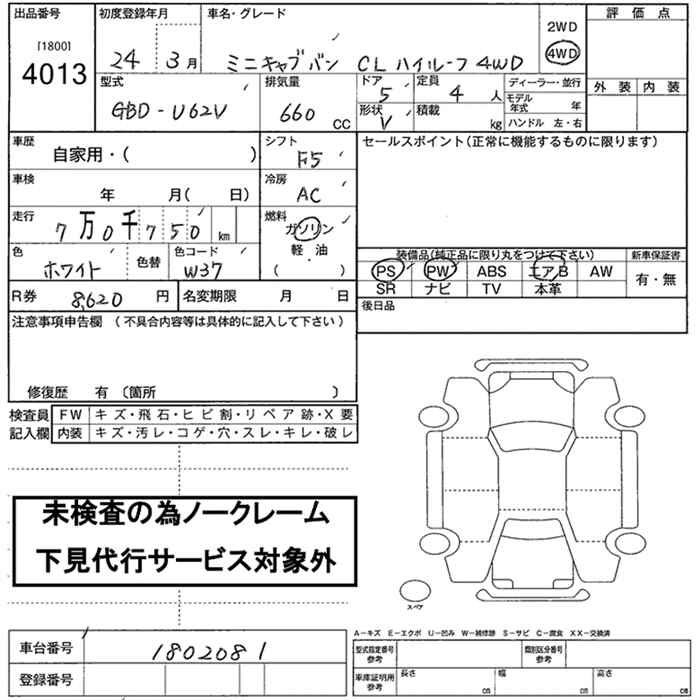 出品番号 初度登録年月 車名・グレード 2WD 評価点
[1800] 4013 24 3月 ミニキャブバン CL ハイルーフ 4WD 4WD
型式 排気量 ドア 定員 ディーラー・並行 外装 内装
GBD-U62V 660 CC 5 4人 モデル年式 年
形状 V 積載 kg ハンドル 左・右
車歴 自家用・( ) シフト F5 セールスポイント(正常に機能するものに限ります)
車検 年 月( 日) 冷房 AC
走行 7万0千750 km 燃料 ガソリン
軽・油
( )
色 ホワイト 色替 色コード W37
装備品(純正品に限り丸をつけて下さい) 新車保証書
PS PW ABS エアB AW 有・無
SR ナビ TV 本革
R券 8,620円 名変期限 月 日 後日品
注意事項申告欄 (不具合内容等は具体的に記入して下さい)
修復歴 有 〔箇所 〕
検査員 FW キズ・飛石・ヒビ割・リペア跡・X要
記入欄 内装 キズ・汚レ・コゲ・穴・スレ・キレ・破レ
未検査の為ノークレーム
下見代行サービス対象外
スペア
A-キズ E-エクボ U-凹み W-補修跡 S-サビ C-腐食 XX-交換済
車台番号 1802081 型式指定番号 参考 類別区分番号 参考
登録番号 車庫証明用 参考 長さ cm 幅 cm 高さ cm